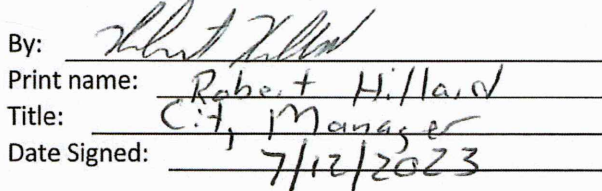 By: Robert Hillard
Print name: Robert Hillard
Title: City Manager
Date Signed: 7/12/2023